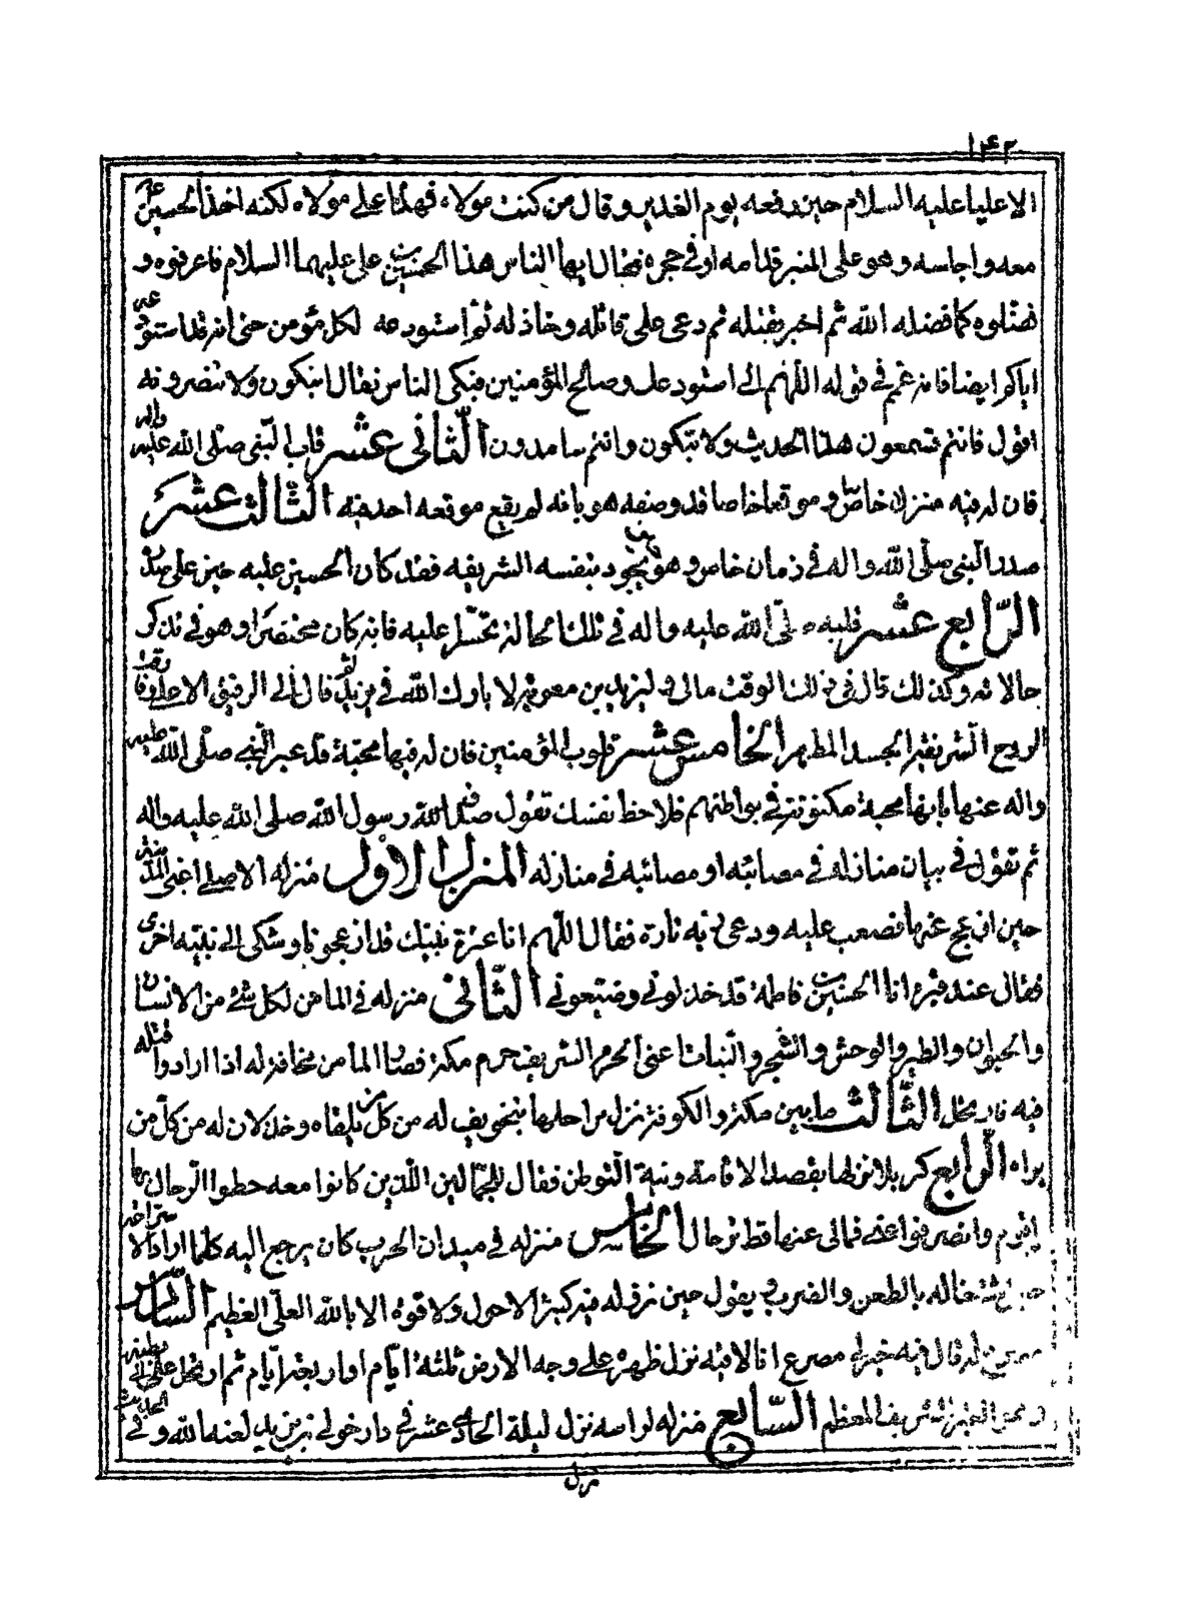 ١٤٢
الا عليا عليه السلام حين رفعه يوم الغدير وقال من كنت مولاه فهذا علي مولاه لكنه اخذ الحسين ع
معه واجلسه وهو على المنبر قدامه او في حجره فقال ايها الناس هذا الحسين بن علي عليهما السلام فاعرفوه و
فضلوه كما فضله الله ثم اخبر بقتله ثم دعى على قاتله وخاذله ثم استودعه لكل مؤمن حتى انه قد استودعه
اياكم ايضا فانه عمم في قوله اللهم اني استودعك وصالح المؤمنين فبكى الناس فقال اتبكون ولا تنصرونه
اقول فانتم تسمعون هذا الحديث ولا تبكون وانتم سامدون الثاني عشر قلب النبي صلى الله عليه واله
فان له فيه منزلا خاصا وموقعا خاصا قد وصفه هو بانه لم يقع موقعه احد فيه الثالث عشر
صدر النبي صلى الله واله في زمان خاص وهو يجود بنفسه الشريفه فقد كان الحسين عليه حين على صدره
الرابع عشر قلبه صلى الله عليه واله في تلك الحالة يتحسر عليه فانه كان محتضرا وهو في تذكر
حالاته وكذلك قال في ذلك الوقت مالي وليزيد بن معوية لا بارك الله في يزيد ثم قال الى الرفيق الاعلى وفارق
الروح الشريفة الجسد المطهر الخامس عشر قلوب المؤمنين فان له فيها محبة قد عبر النبي صلى الله عليه
واله عنها بانها محبة مكنونة في بواطنهم فلاحظ نفسك تقول صدق الله رسول الله صلى الله عليه واله
ثم نقول في بيان منازله في مصائبه او مصائبه في منازله المنزل الاول منزله الاصلي اعني المدينة
حين ازعج عنها فصعب عليه ودعى ربه تارة فقال اللهم انا عترة نبيك قد ازعجونا وشكى الى نبيه اخرى
فقال عند قبره انا الحسين بن فاطمة قد خذلوني وضيعوني الثاني منزله في المامن لكل شئ من الانسان
والحيوان والطير والوحش والشجر والنبات اعني الحرم الشريف حرم مكة فصار المأمن مخافة له اذا ارادوا قتله
فيه فارتحل الثالث ما بين مكة والكوفة نزل مراحلها بتخويف له من كل من يلقاه وخذلان له من كل من
يراه الرابع كربلا نزلها بقصد الاقامة ونية التوطن فقال للجمالين الذين كانوا معه حطوا الرحال بنا
اقيم وانصرفوا عني فمالى عنها قط ترحال الخامس منزله في ميدان الحرب كان يرجع اليه كلما اراد الاستراحة
حين اشتغاله بالطعن والضرب يقول حين نزوله فيه كبيرا لاحول ولا قوة الا بالله العلي العظيم السادس
لد قال فيه خير لي مصرع انا لاقيه نزل ظهره على وجه الارض ثلثة ايام او اربعة ايام ثم ارتحل على الى بطنه
الشريف المعظم السابع منزله لراسه نزل ليلة الحادي عشر في دار خولي بن يزيد لعنه الله وفي الحديث
نزل